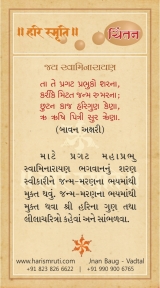 ॥ હરિ સ્મૃતિ ॥
ચિંતન
જય સ્વામિનારાયણ
તા તે પ્રગટ પ્રભુકો શરના,
કરીકે મિટત જન્મ રુ મરના;
છુટન કાજ હરિગુણ કેણા,
ઋ ઋષિ પિત્રી સુર ત્રેણા.
(બાવન અક્ષરી)
માટે પ્રગટ મહાપ્રભુ
સ્વામિનારાયણ ભગવાનનું શરણ
સ્વીકારીને જન્મ-મરણના ભયમાંથી
મુક્ત થવું. જન્મ-મરણના ભયમાંથી
મુક્ત થવા શ્રી હરિના ગુણ તથા
લીલાચરિત્રો કહેવાં અને સાંભળવા.
www.harismruti.com
Jnan Baug - Vadtal
+91 823 826 6622
+91 990 900 6765